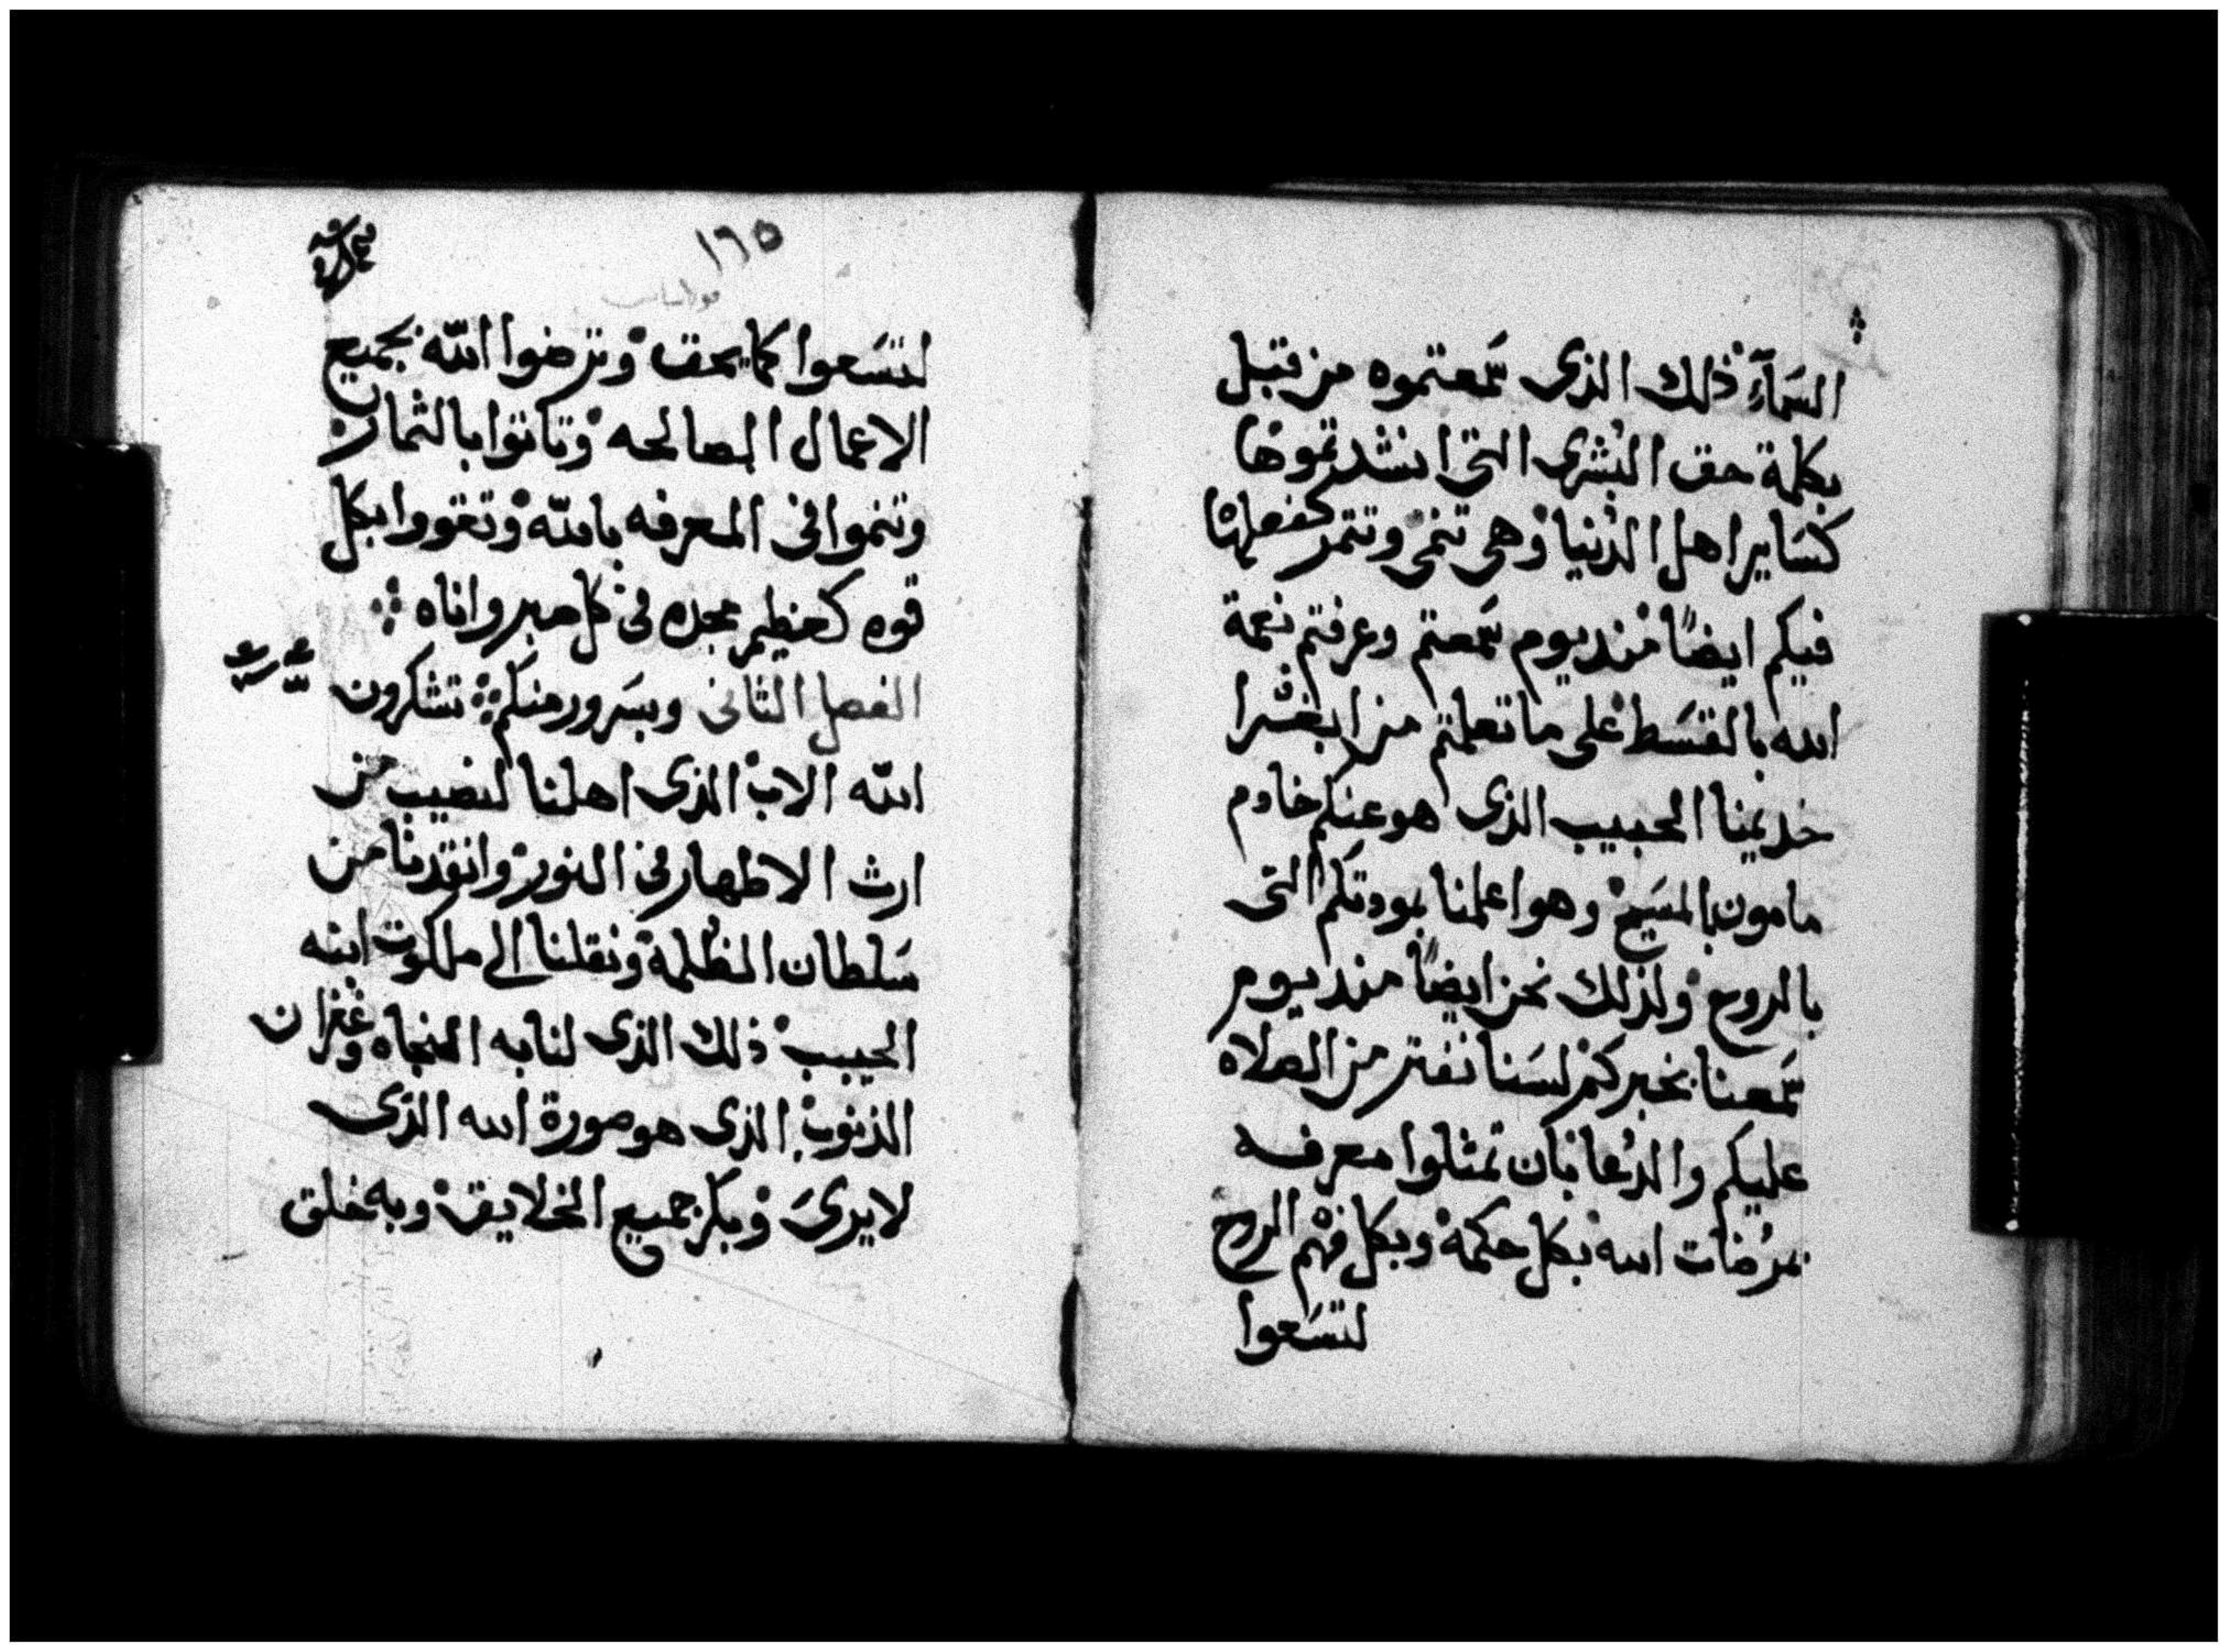 السَمآء ذلك الذى سَمعتموه من قبل
بكلمة حق البُشرى التى انشدتموها
كسَاير اهل الدُنيا وهى تنمى وتثمر كفعلها
فيكم ايضًا منديوم سَمعتم وعرفتم نعمة
الله بالقسَط على ما تعلمتم من ابغفرا
خديمنا الحبيب الذى هو عنكم خادم
مامون بالمسَيح وهو اعلمنا بمودتكم التى
بالروح ولذلك نحن ايضًا منديوم
سَمعنا بخبركم لسَنا نفتر من الصلاه
عليكم والدُعا بان تمثلوا معرفه
مرُضات الله بكل حكمة وبكل فهم الروح
لتسَعوا
١٦٥
لتسَعوا كما يحق وترضوا اللّه بجميع
الاعمال الصالحه وتاتوا بالثمار
وتنموا فى المعرفه باللّه وتقووا بكل
قوه كعظيم مجده فى كل صبر واناه
الفصل الثانى وبسَرور منكم تشكرون
اللّه الاب الذى اهلنا لنصيب من
ارث الاطهار فى النور وانقدنا من
سَلطان الظُلمة ونقلنا الى ملكوت ابنه
الحبيب ذلك الذى لنا به النجاه وغفران
الذنوب الذى هو صورة الله الذى
لا يرىَ وبكر جميع الخلايق وبه خلق